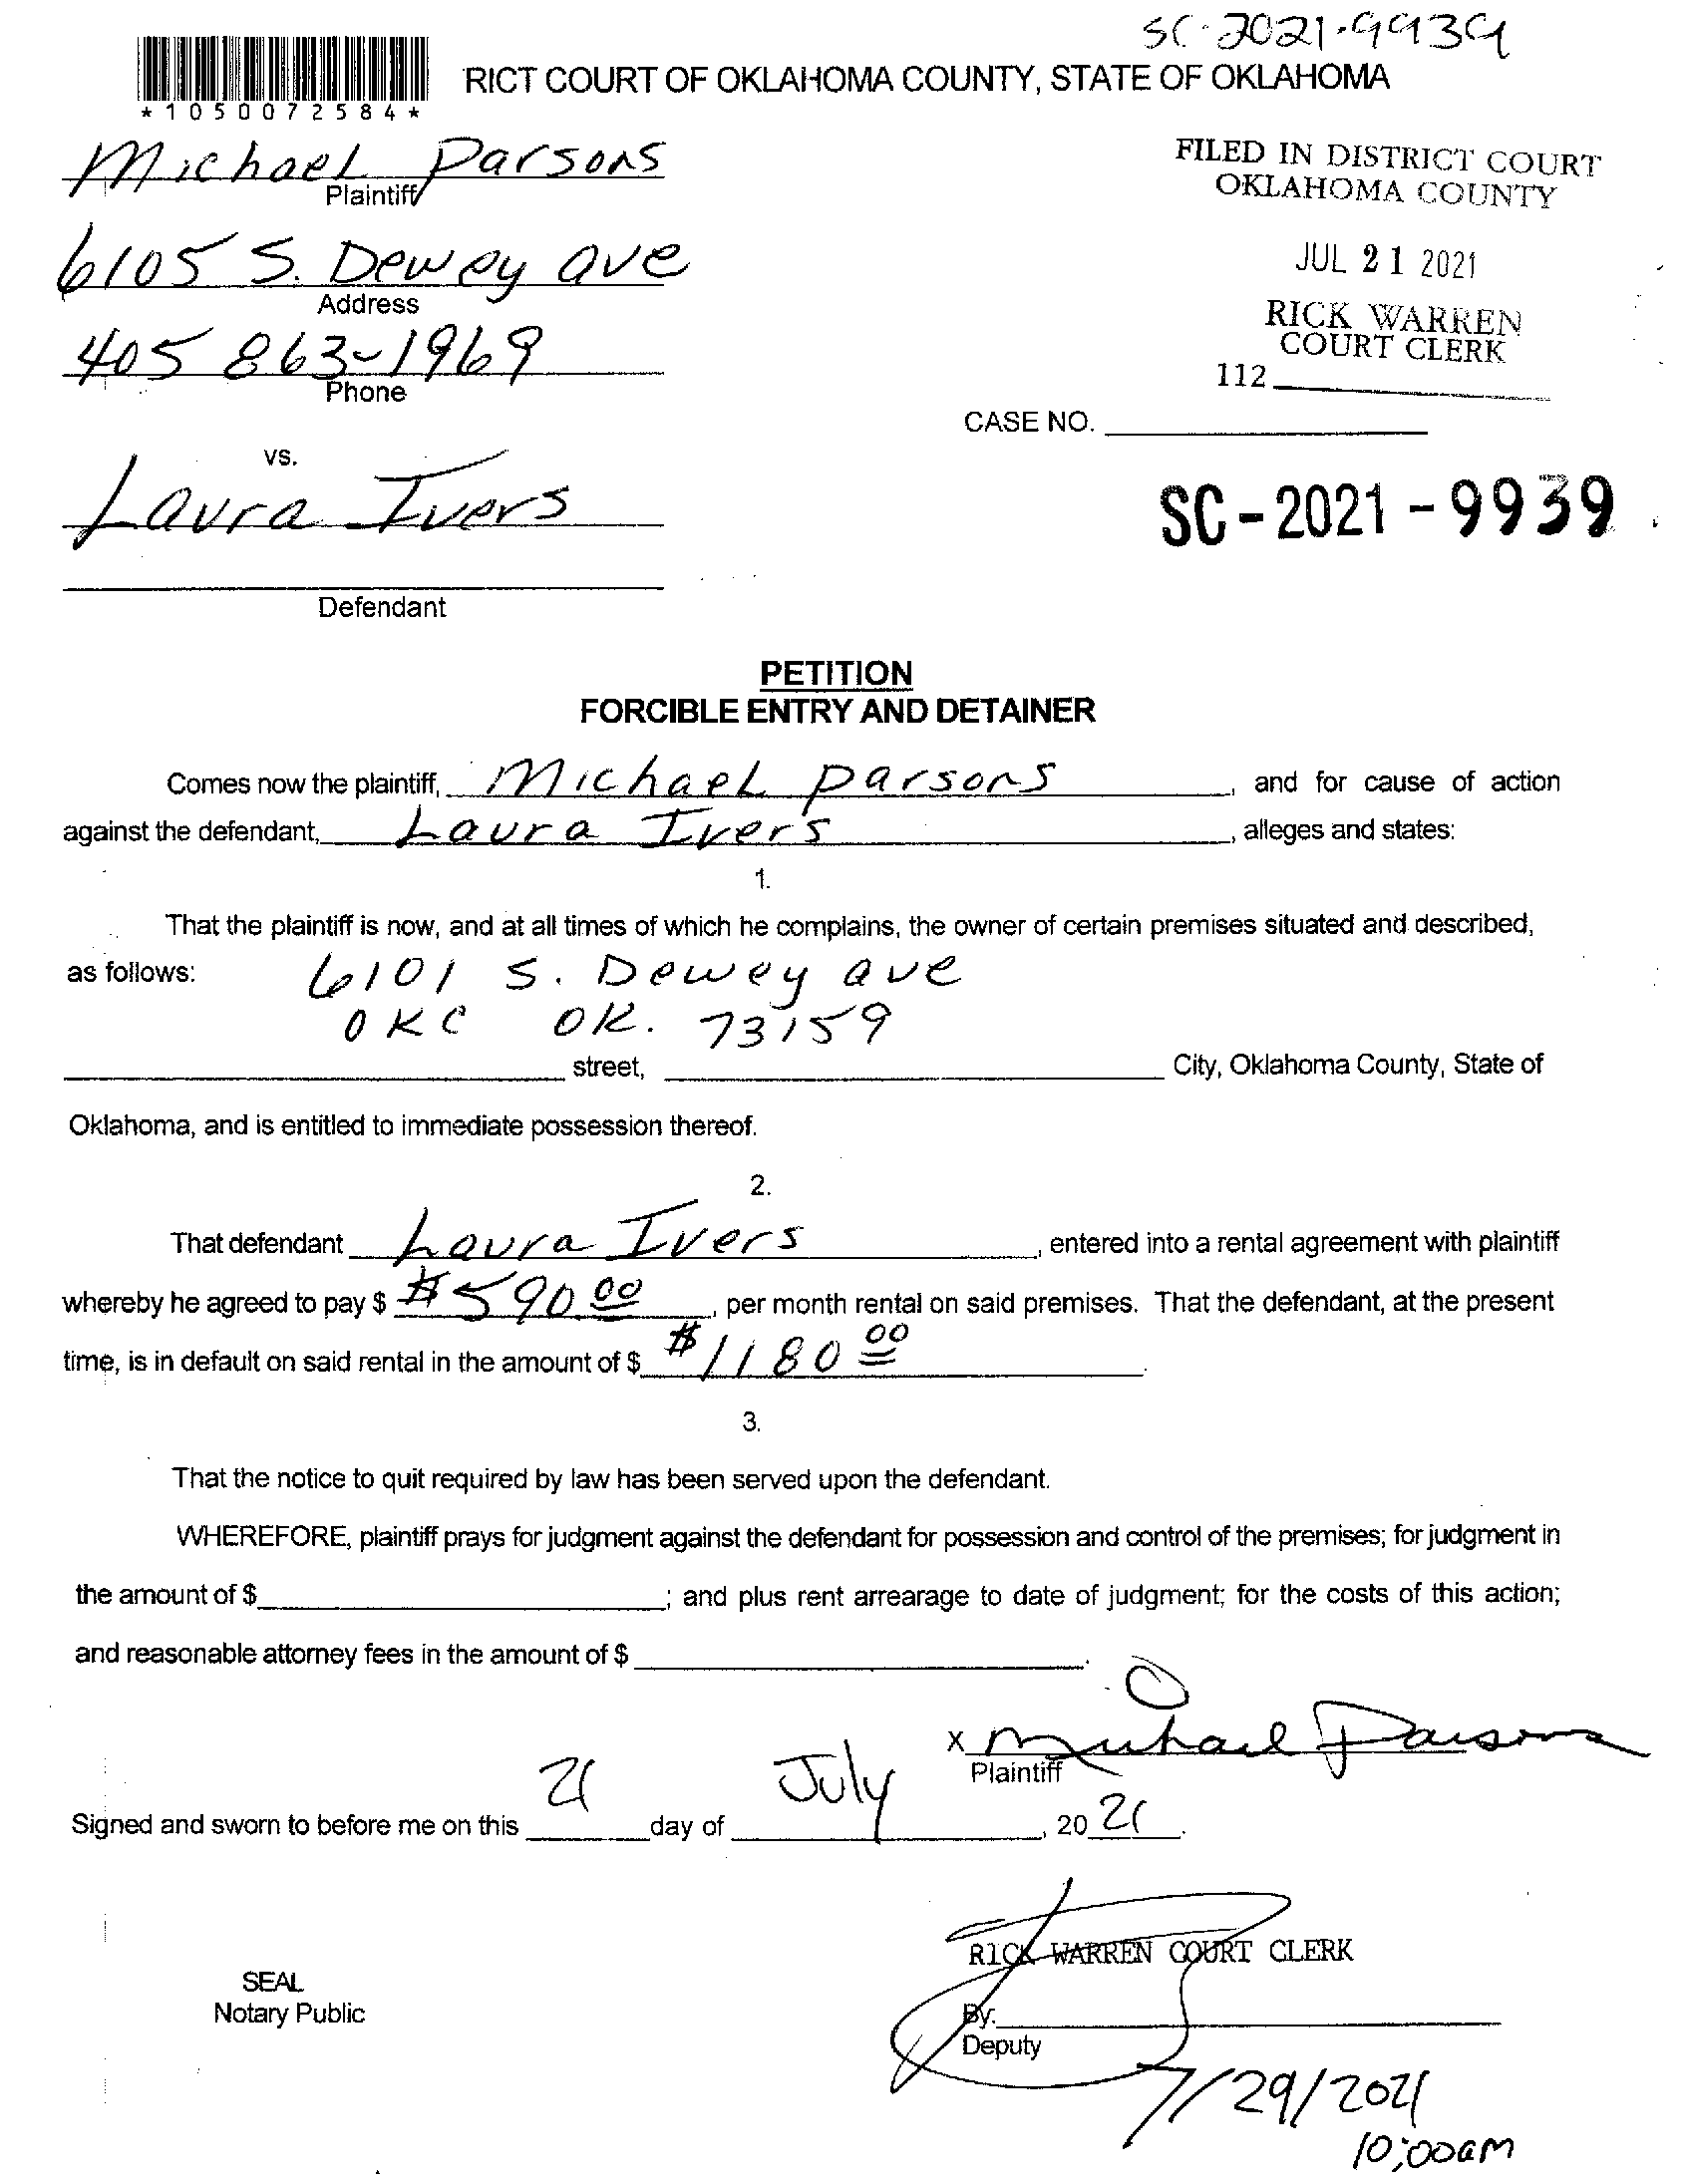 SC-2021-9939
RICT COURT OF OKLAHOMA COUNTY, STATE OF OKLAHOMA
*1050072584*
Michael Parsons
Plaintiff
FILED IN DISTRICT COURT
OKLAHOMA COUNTY
6105 S. Dewey ave
Address
JUL 21 2021
405 863-1969
Phone
RICK WARREN
COURT CLERK
112
CASE NO.
vs.
Laura Ivers
SC-2021-9939
Defendant
PETITION
FORCIBLE ENTRY AND DETAINER
Comes now the plaintiff, Michael Parsons, and for cause of action
against the defendant, Laura Ivers, alleges and states:
1.
That the plaintiff is now, and at all times of which he complains, the owner of certain premises situated and described,
as follows: 6101 S. Dewey ave
OKC OK. 73159
street, City, Oklahoma County, State of
Oklahoma, and is entitled to immediate possession thereof.
2.
That defendant Laura Ivers, entered into a rental agreement with plaintiff
whereby he agreed to pay $ $590.00, per month rental on said premises. That the defendant, at the present
time, is in default on said rental in the amount of $ $1180.00.
3.
That the notice to quit required by law has been served upon the defendant.
WHEREFORE, plaintiff prays for judgment against the defendant for possession and control of the premises; for judgment in
the amount of $ ; and plus rent arrearage to date of judgment; for the costs of this action;
and reasonable attorney fees in the amount of $ .
X Michael Parsons
Plaintiff
Signed and sworn to before me on this 21 day of July, 2021.
RICK WARREN COURT CLERK
SEAL
Notary Public
By:
Deputy
7/29/2021
10:00am